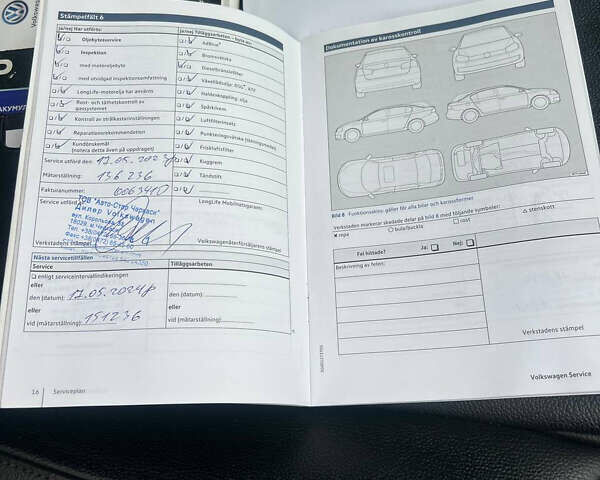 Volkswagen
АКУМУЛ
Stämpelfält 6
ja/nej Har utförts:
Oljebytesservice
Inspektion
med motoroljebyte
med utvidgad inspektionsomfattning
LongLife-motorolja har använts
Rost- och täthetskontroll av
gassystemet
Kontroll av strålkasterinställningen
Reparationsrekommendation
Kundönskemål
(notera detta även på uppdraget)
Service utförd den: 17.05.2023р
Mätarställning: 136 236
Fakturanummer:
Service utförd av:
ТОВ "Авто-Стар Черкаси"
Дилер Volkswagen
Verkstadens stämpel
ja/nej Tilläggsarbeten – byte av:
AdBlue®
Bromsvätska
Dieselbränslefilter
Haldexkoppling: olja
Spärrkilrem
Luftfilterinsats
Friskluftsfilter
Kuggrem
Tändstift
LongLife Mobilitetsgaranti:
Volkswagenåterförsäljarens stämpel
Nästa servicetillfällen
Service
Tilläggsarbeten
enligt serviceintervallindikeringen
eller
den (datum): 17.05.2024р
den (datum):
eller
eller
vid (mätarställning): 151236
vid (mätarställning):
16 Serviceplan
Dokumentation av karosskontroll
Bild 8 Funktionsskiss: gäller för alla bilar och karossformer
Verkstaden markerar skadade delar på bild 8 med följande symboler:
× repa ○ bula/buckla □ rost △ stenskott
Fel hittade? Ja: Nej:
Beskrivning av felen:
Verkstadens stämpel
Volkswagen Service